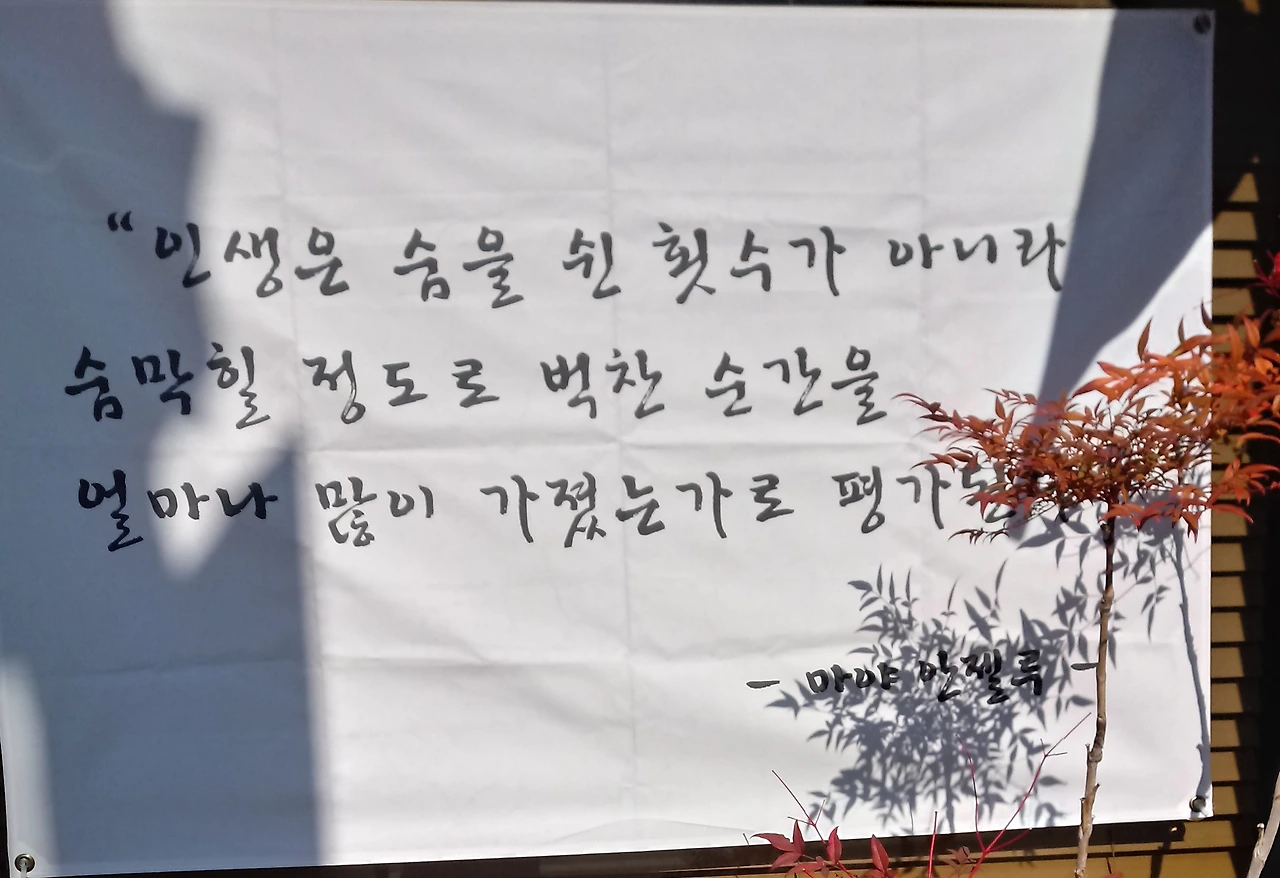 “인생은 숨을 쉰 횟수가 아니라
숨막힐 정도로 벅찬 순간을
얼마나 많이 가졌는가로
- 마야 안젤루 -